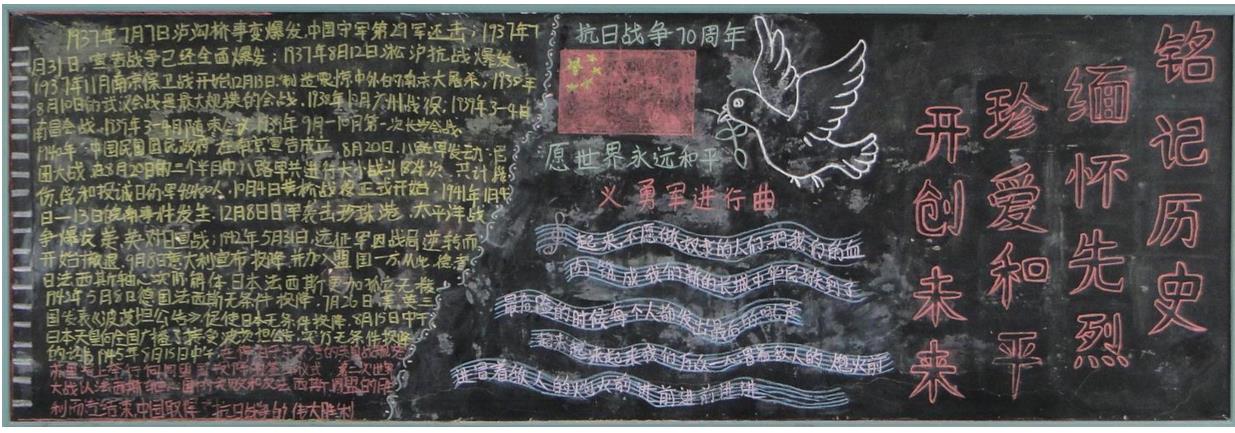 1937年7月7日泸沟桥事变爆发,中国守军第29军还击;1937年7
月31日,宣告战争已经全面爆发;1937年8月12日淞沪抗战爆发,
1937年11月南京保卫战开始12月13日制造震惊中外的南京大屠杀;1938年
8月10日的武汉会战是最大规模的会战,1938年10月广州战役;1939年3-4月
南昌会战,1939年3-4月随枣会战1939年9月-10月第一次长沙会战
1940年,中国民国国民政府在南京宣告成立,8月20日,八路军发动百
团大战
日-13日皖南事件发生,12月8日日军袭击珍珠港,太平洋战
争爆发美,英对日宣战;1942年5月31日,远征军因战局逆转而
开始撤退,9月8日意大利宣布投降,并加入盟国一方从此德意
日法西斯轴心实际解体,日本法西斯更加孤立无援
1945年5月8日德国法西斯无条件投降,7月26日美英三
国发表《波茨坦公告》促使日本无条件投降,8月15日中午
日本天皇向全国广播了接受波茨坦公告,实行无条件投降
的诏书
大战以法西斯轴心国的失败和反法西斯同盟的胜
利而告结束,中国取得了抗日战争的伟大胜利
抗日战争70周年
愿世界永远和平
义勇军进行曲
起来不愿做奴隶的人们把我们的血
肉筑成我们新的长城中华民族到了
最危险的时候每个人都发出最后的吼声
起来起来起来我们万众一心冒着敌人的炮火前
进冒着敌人的炮火前进前进前进进
铭记历史
缅怀先烈
珍爱和平
开创未来